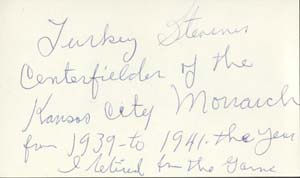 Turkey Stevens
Centerfielder of the
Kansas City Monarch
from 1939-to 1941. the year
I retired from the Game